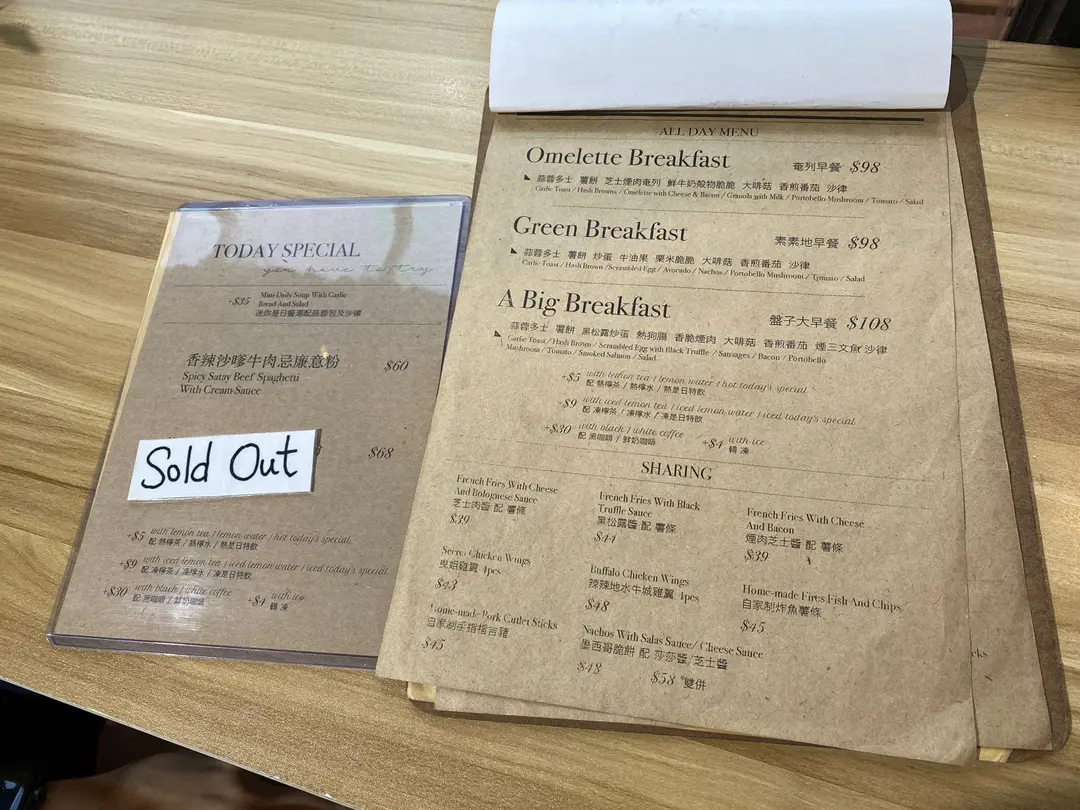 TODAY SPECIAL
you have to try
+$35 Mini Daily Soup With Garlic
Bread And Salad
迷你是日餐湯配蒜蓉包及沙律
香辣沙嗲牛肉忌廉意粉 $60
Spicy Satay Beef Spaghetti
With Cream Sauce
Sold Out $68
+$5 with lemon tea / lemon water / hot today's special
配 熱檸茶 / 熱檸水 / 熱是日特飲
+$9 with iced lemon tea / iced lemon water / iced today's special
配 凍檸茶 / 凍檸水 / 凍是日特飲
+$30 with black / white coffee +$4 with ice
配 黑咖啡 / 鮮奶咖啡 轉 凍
ALL DAY MENU
Omelette Breakfast 奄列早餐 $98
蒜蓉多士 薯餅 芝士煙肉奄列 鮮牛奶穀物脆脆 大啡菇 香煎番茄 沙律
Garlic Toast / Hash Browns / Omelette with Cheese & Bacon / Granola with Milk / Portobello Mushroom / Tomato / Salad
Green Breakfast 素素地早餐 $98
蒜蓉多士 薯餅 炒蛋 牛油果 粟米脆脆 大啡菇 香煎番茄 沙律
Garlic Toast / Hash Brown / Scrambled Egg / Avocado / Nachos / Portobello Mushroom / Tomato / Salad
A Big Breakfast 盤子大早餐 $108
蒜蓉多士 薯餅 黑松露炒蛋 熱狗腸 香脆煙肉 大啡菇 香煎番茄 煙三文魚 沙律
Garlic Toast / Hash Brown / Scrambled Egg with Black Truffle / Sausages / Bacon / Portobello
Mushroom / Tomato / Smoked Salmon / Salad
+$5 with lemon tea / lemon water / hot today's special
配 熱檸茶 / 熱檸水 / 熱是日特飲
+$9 with iced lemon tea / iced lemon water / iced today's special
配 凍檸茶 / 凍檸水 / 凍是日特飲
+$30 with black / white coffee +$4 with ice
配 黑咖啡 / 鮮奶咖啡 轉 凍
SHARING
French Fries With Cheese
And Bolognese Sauce
芝士肉醬 配 薯條
$39
French Fries With Black
Truffle Sauce
黑松露醬 配 薯條
$44
French Fries With Cheese
And Bacon
煙肉芝士醬 配 薯條
$39
Chicken Wings
雞翼 4pcs
$43
Buffalo Chicken Wings
辣辣地水牛城雞翼 4pcs
$48
Home-made Fires Fish And Chips
自家制炸魚薯條
$45
Home-made Pork Cutlet Sticks
自家制手指豬
$45
Nachos With Salas Sauce/ Cheese Sauce
墨西哥脆餅 配 莎莎醬/芝士醬
$48 $58 *雙併
cks